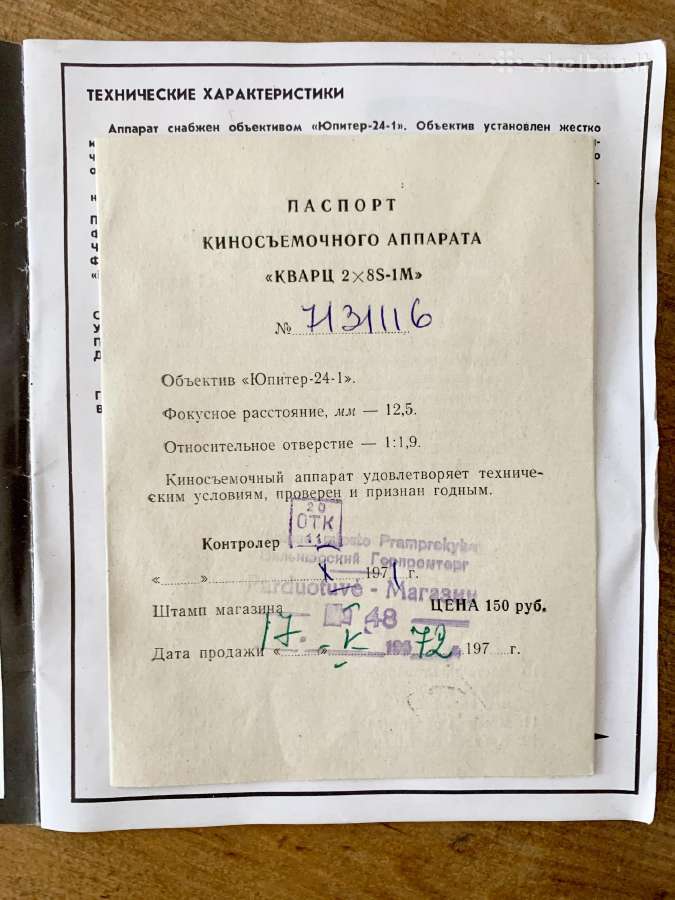 skelbiu.lt
ТЕХНИЧЕСКИЕ ХАРАКТЕРИСТИКИ
Аппарат снабжен объективом «Юпитер-24-1». Объектив установлен жестко
ПАСПОРТ
КИНОСЪЕМОЧНОГО АППАРАТА
«КВАРЦ 2×8S-1М»
№ 7131116
Объектив «Юпитер-24-1».
Фокусное расстояние, мм — 12,5.
Относительное отверстие — 1:1,9.
Киносъемочный аппарат удовлетворяет техниче-
ским условиям, проверен и признан годным.
20
ОТК
11
Контролер
miesto Pramprekyba
Вильнюсский Горпромторг
« » X 1971 г.
Parduotuvė - Магазин
Штамп магазина
48
ЦЕНА 150 руб.
Дата продажи « 17. » 72 197 г.